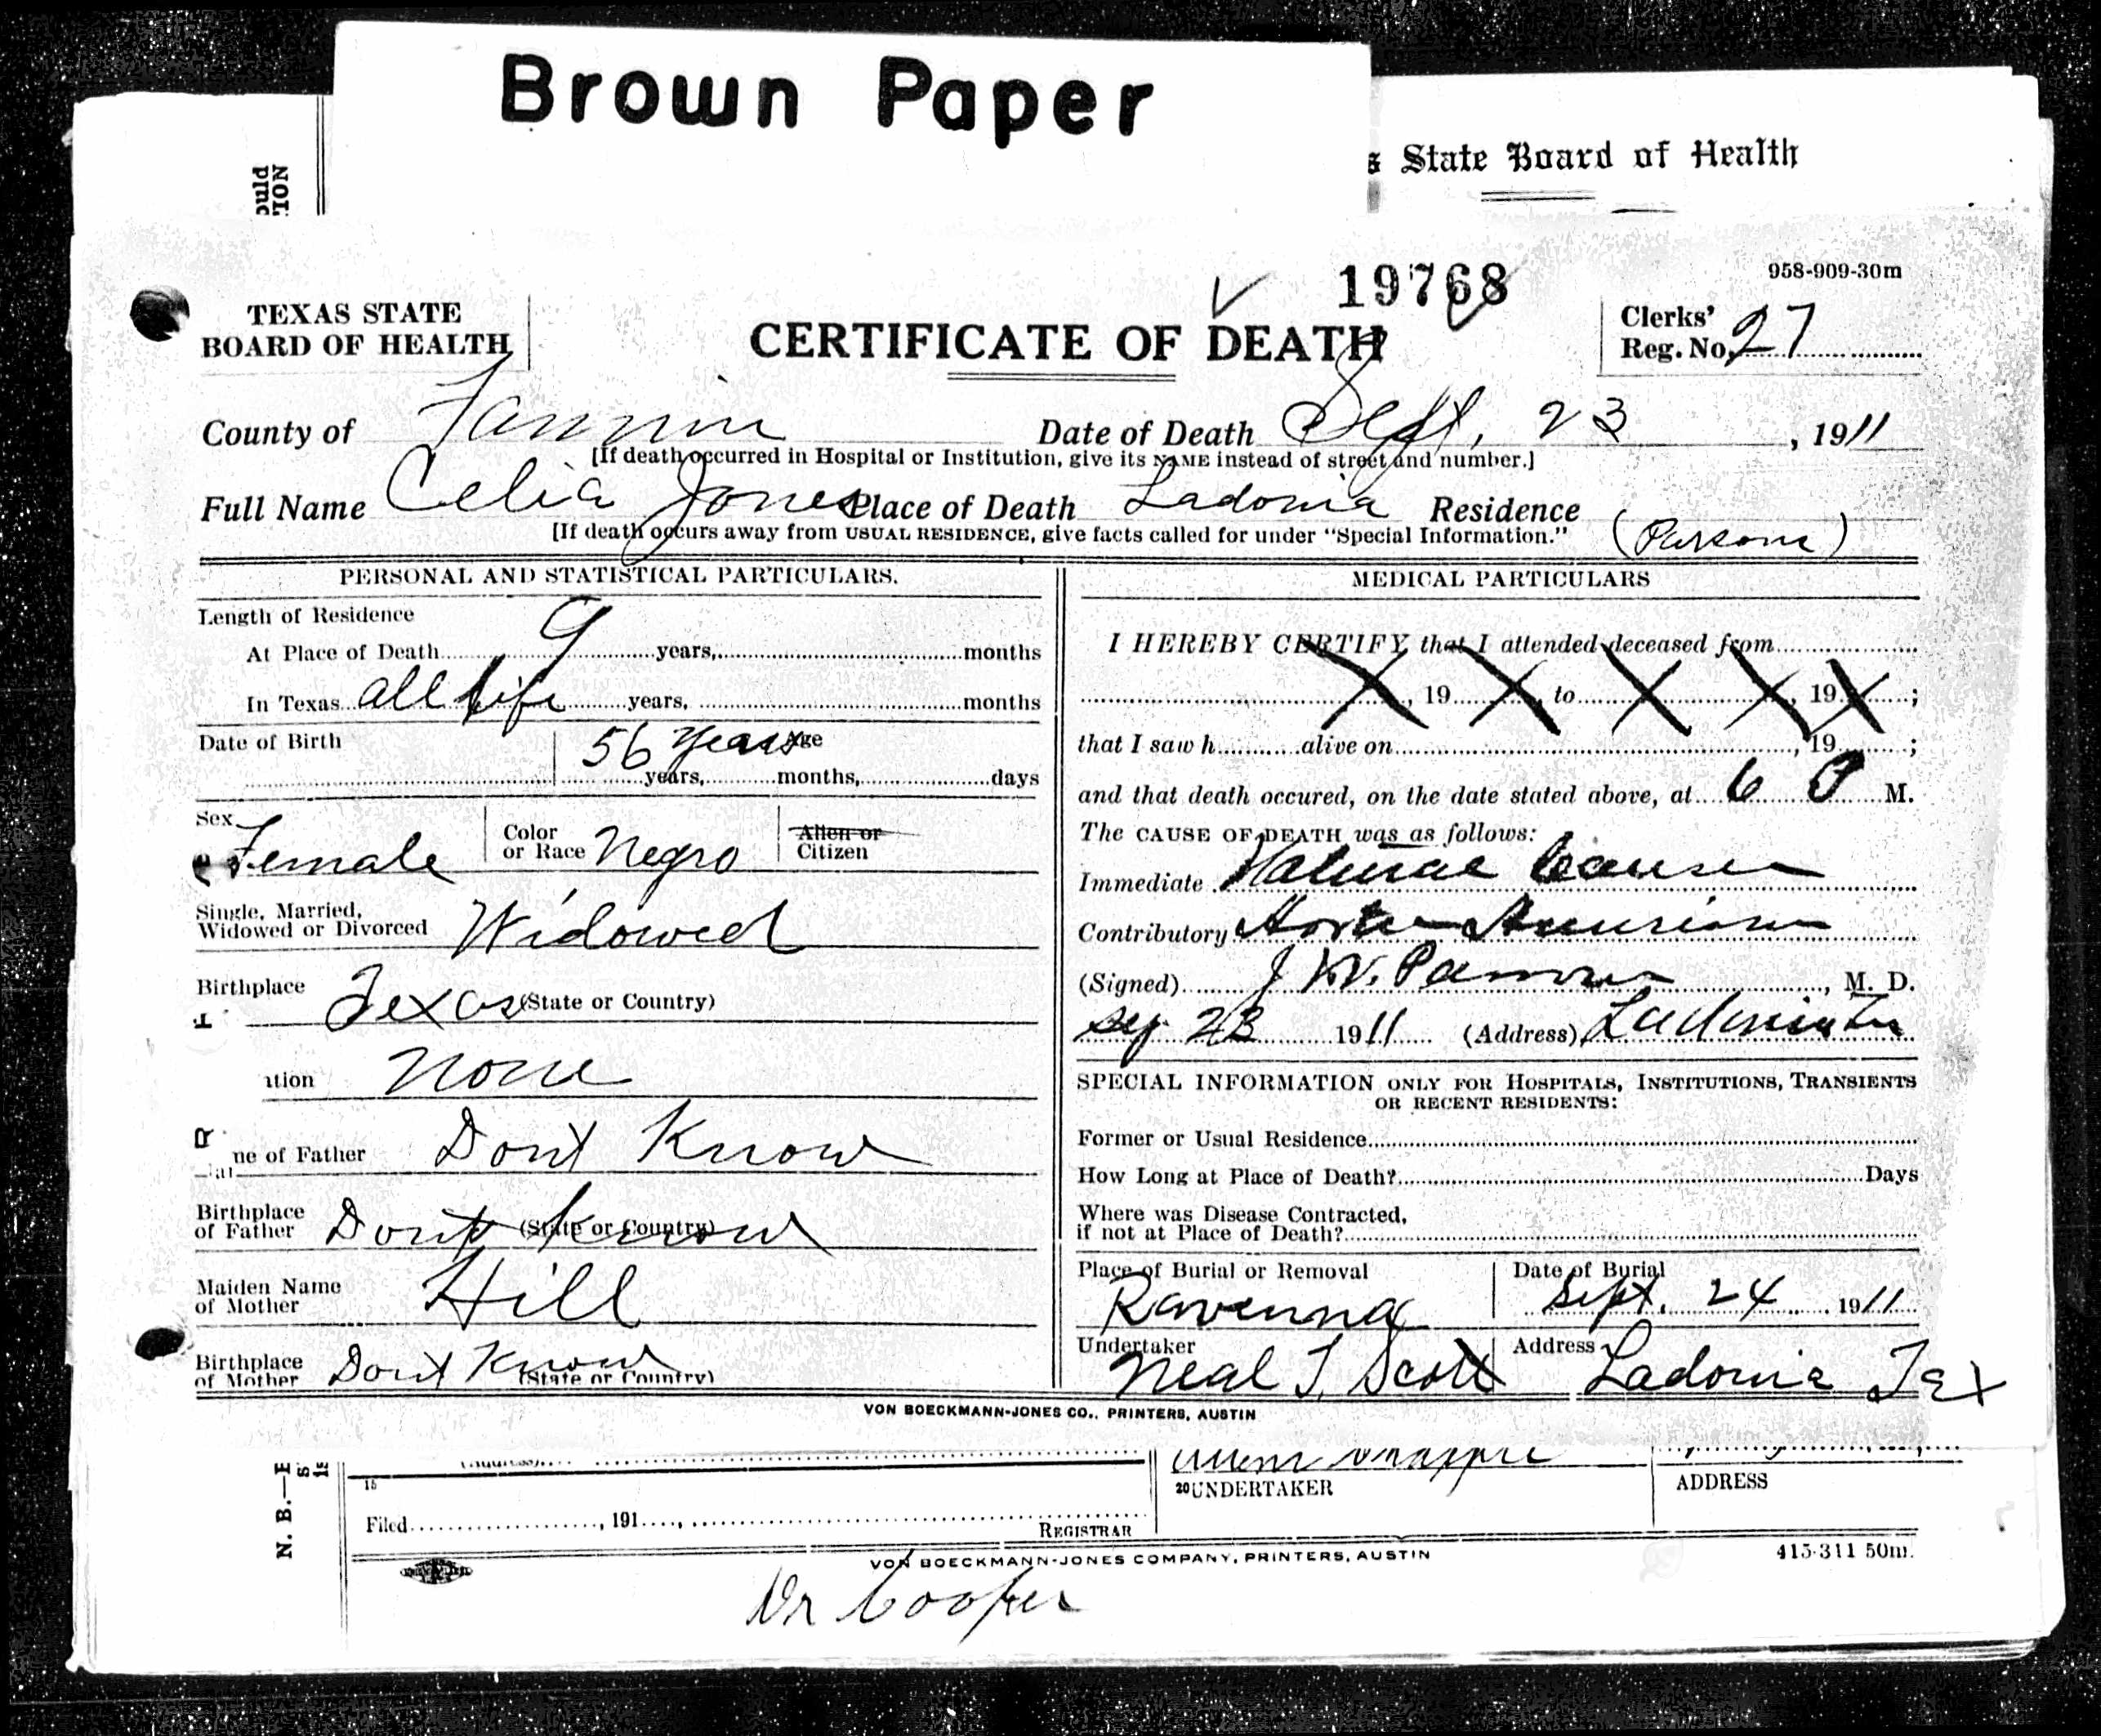 Brown Paper
s State Board of Health
ould
TION
19768
958-909-30m
TEXAS STATE
BOARD OF HEALTH
CERTIFICATE OF DEATH
Clerks'
Reg. No. 27
County of Fannin Date of Death Sept. 23, 1911
[If death occurred in Hospital or Institution, give its NAME instead of street and number.]
Full Name Celia Jones Place of Death Ladonia Residence
[If death occurs away from USUAL RESIDENCE, give facts called for under "Special Information."
PERSONAL AND STATISTICAL PARTICULARS.
Length of Residence
At Place of Death 9 years, months
In Texas all life years, months
Date of Birth 56 years Age
years, months, days
Sex
Female
Color
or Race Negro
Alien or
Citizen
Single, Married,
Widowed or Divorced Widowed
Birthplace
Texas (State or Country)
ation None
ne of Father Dont Know
Birthplace
of Father Dont Know (State or Country)
Maiden Name
of Mother Hill
Birthplace
of Mother Dont Know (State or Country)
MEDICAL PARTICULARS
I HEREBY CERTIFY, that I attended deceased from
X, 19 X to X X, 19 X;
that I saw h alive on , 19 ;
and that death occured, on the date stated above, at 6 P M.
The CAUSE OF DEATH was as follows:
Immediate Natural Causes
Contributory
(Signed) J W. , M. D.
Sep 23 1911 (Address) Ladonia Tx
SPECIAL INFORMATION ONLY FOR HOSPITALS, INSTITUTIONS, TRANSIENTS
OR RECENT RESIDENTS:
Former or Usual Residence
How Long at Place of Death? Days
Where was Disease Contracted,
if not at Place of Death?
Place of Burial or Removal
Ravenna
Date of Burial
Sept. 24 1911
Undertaker
Neal T. Scott
Address Ladonia Tex
VON BOECKMANN-JONES CO., PRINTERS, AUSTIN
N. B.—E
15
Filed , 191 ,
REGISTRAR
20 UNDERTAKER
ADDRESS
VON BOECKMANN-JONES COMPANY, PRINTERS, AUSTIN
415-311 50m.
Dr Cooper